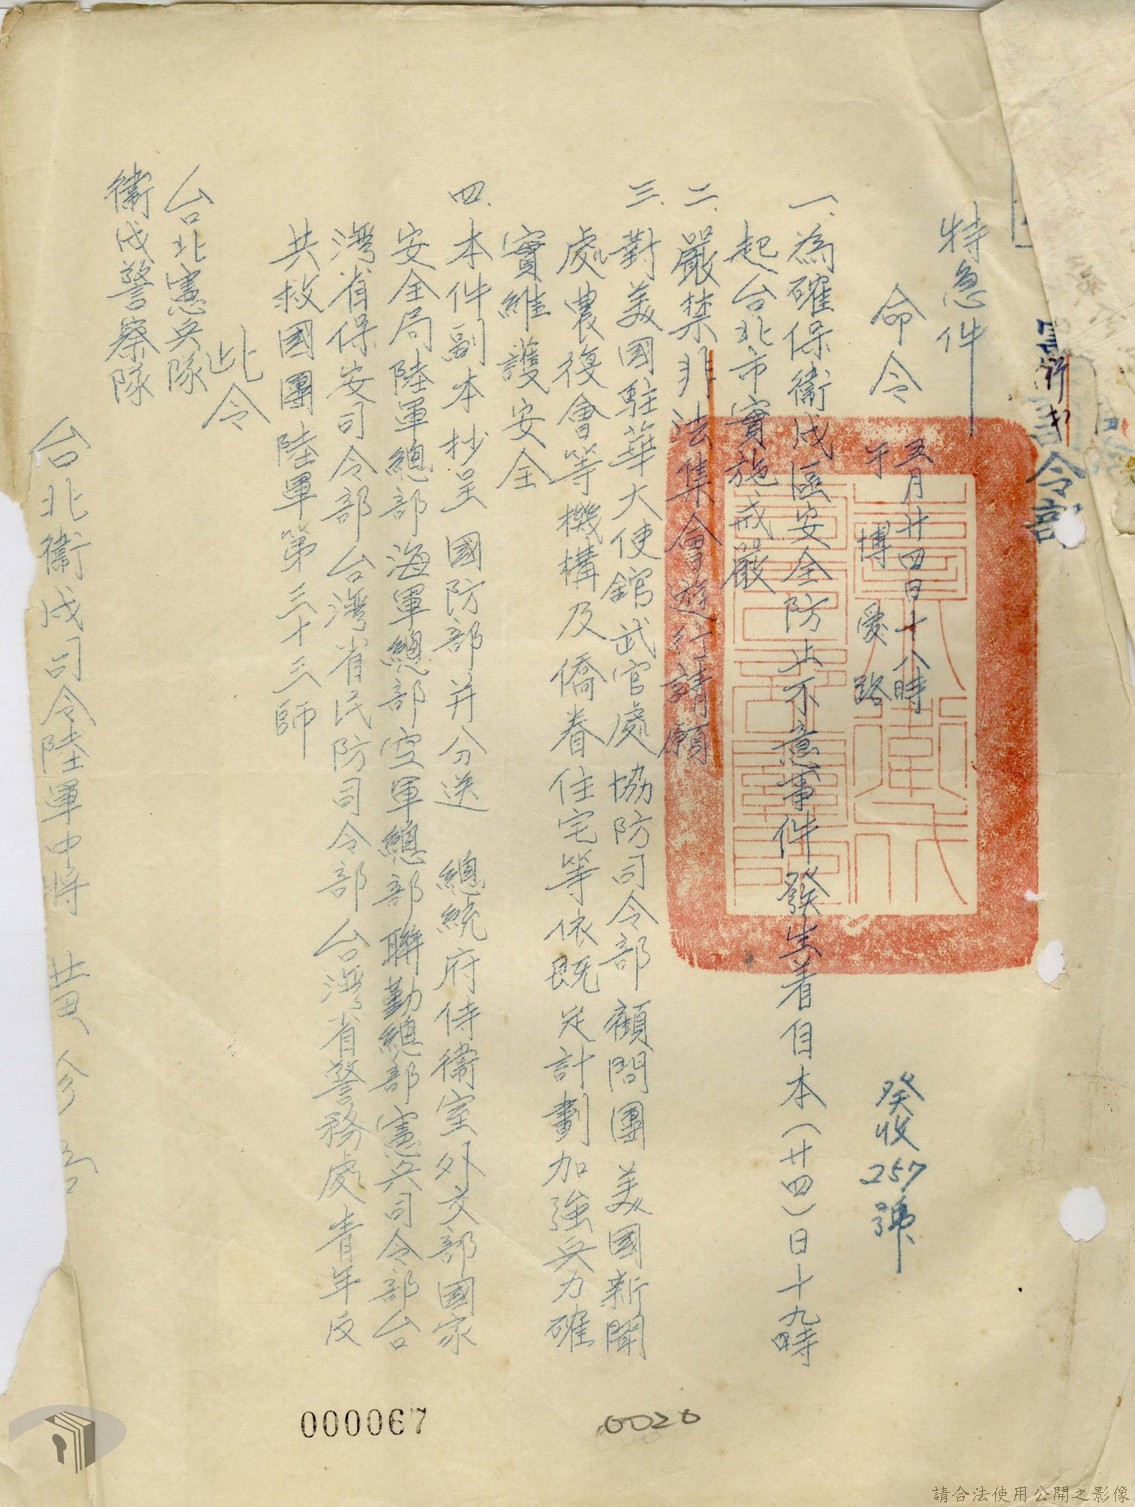 特急件
命令
五月廿四日十八時
于博愛路
癸收257號
一、為確保衞戍區安全防止不意事件發生着自本（廿四）日十九時
起台北市實施戒嚴
二、嚴禁非法集會遊行請願
三、對美國駐華大使舘武官處協防司令部顧問團美國新聞
處農復會等機構及僑眷住宅等依既定計劃加強兵力確
實維護安全
四、本件副本抄呈 國防部并分送 總統府侍衞室外交部國家
安全局陸軍總部海軍總部空軍總部聯勤總部憲兵司令部台
灣省保安司令部台灣省民防司令部台灣省警務處青年反
共救國團陸軍第三十三師
此令
台北憲兵隊
衞戍警察隊
台北衞戍司令陸軍中將 黃
令部
000067
0020
請合法使用公開之影像